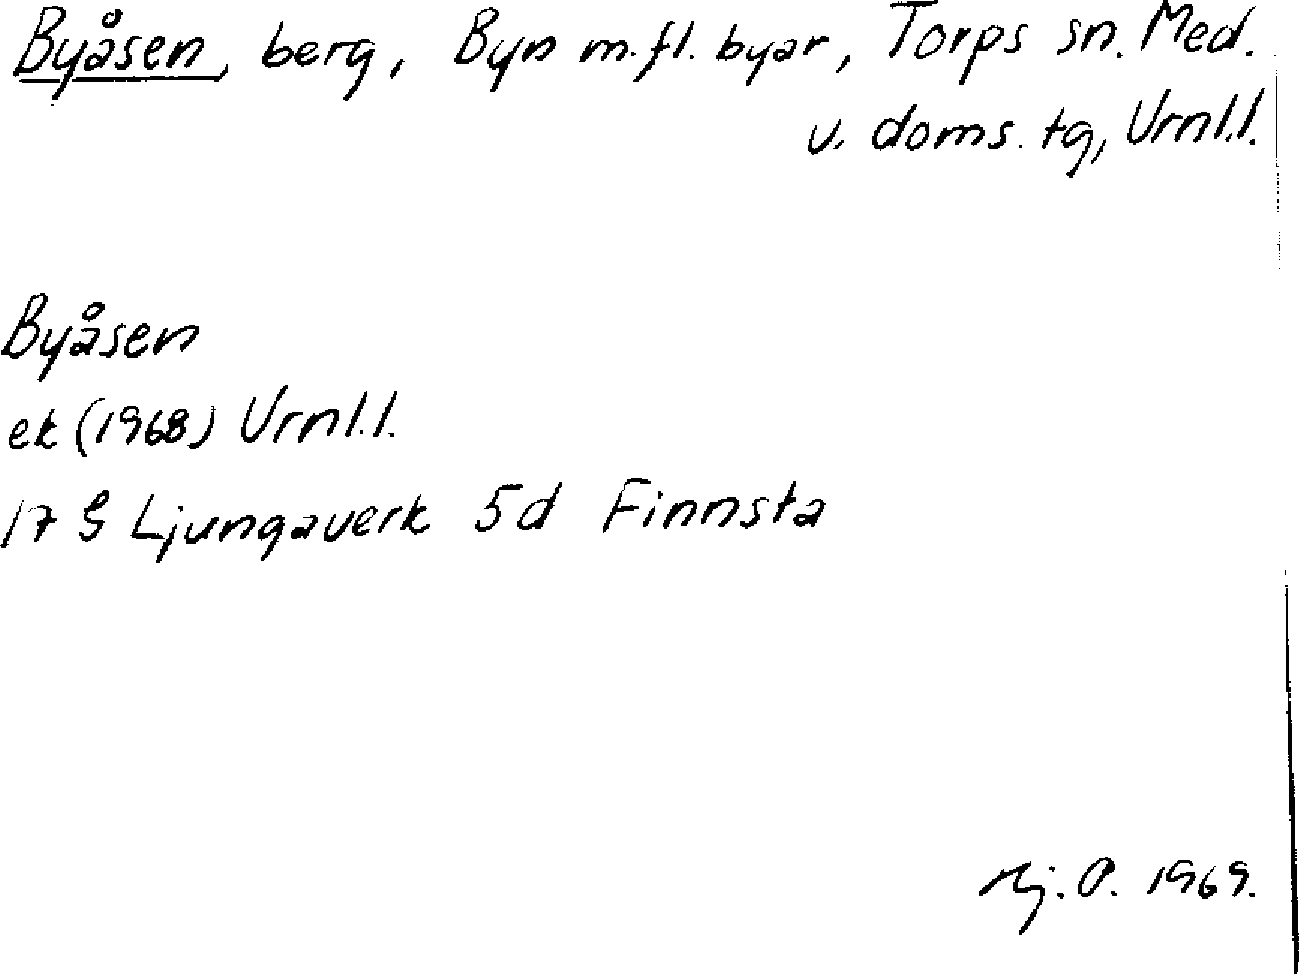 Byåsen, berg, Byn m.fl. byar, Torps sn. Med.
v. doms. tg, Vrnl.l.
Byåsen
ek (1968) Vrnl.l.
17 G Ljungaverk 5d Finnsta
O. 1969.